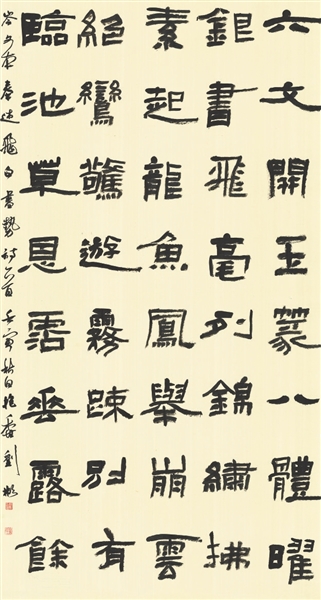 六文開玉篆八體曜
銀書飛毫列錦繡拂
素起龍魚鳳舉崩雲
絕鸞驚遊霧踈別有
臨池草恩霑垂露餘
岑文本奉述飛白書勢詩一首壬寅秋日於劉